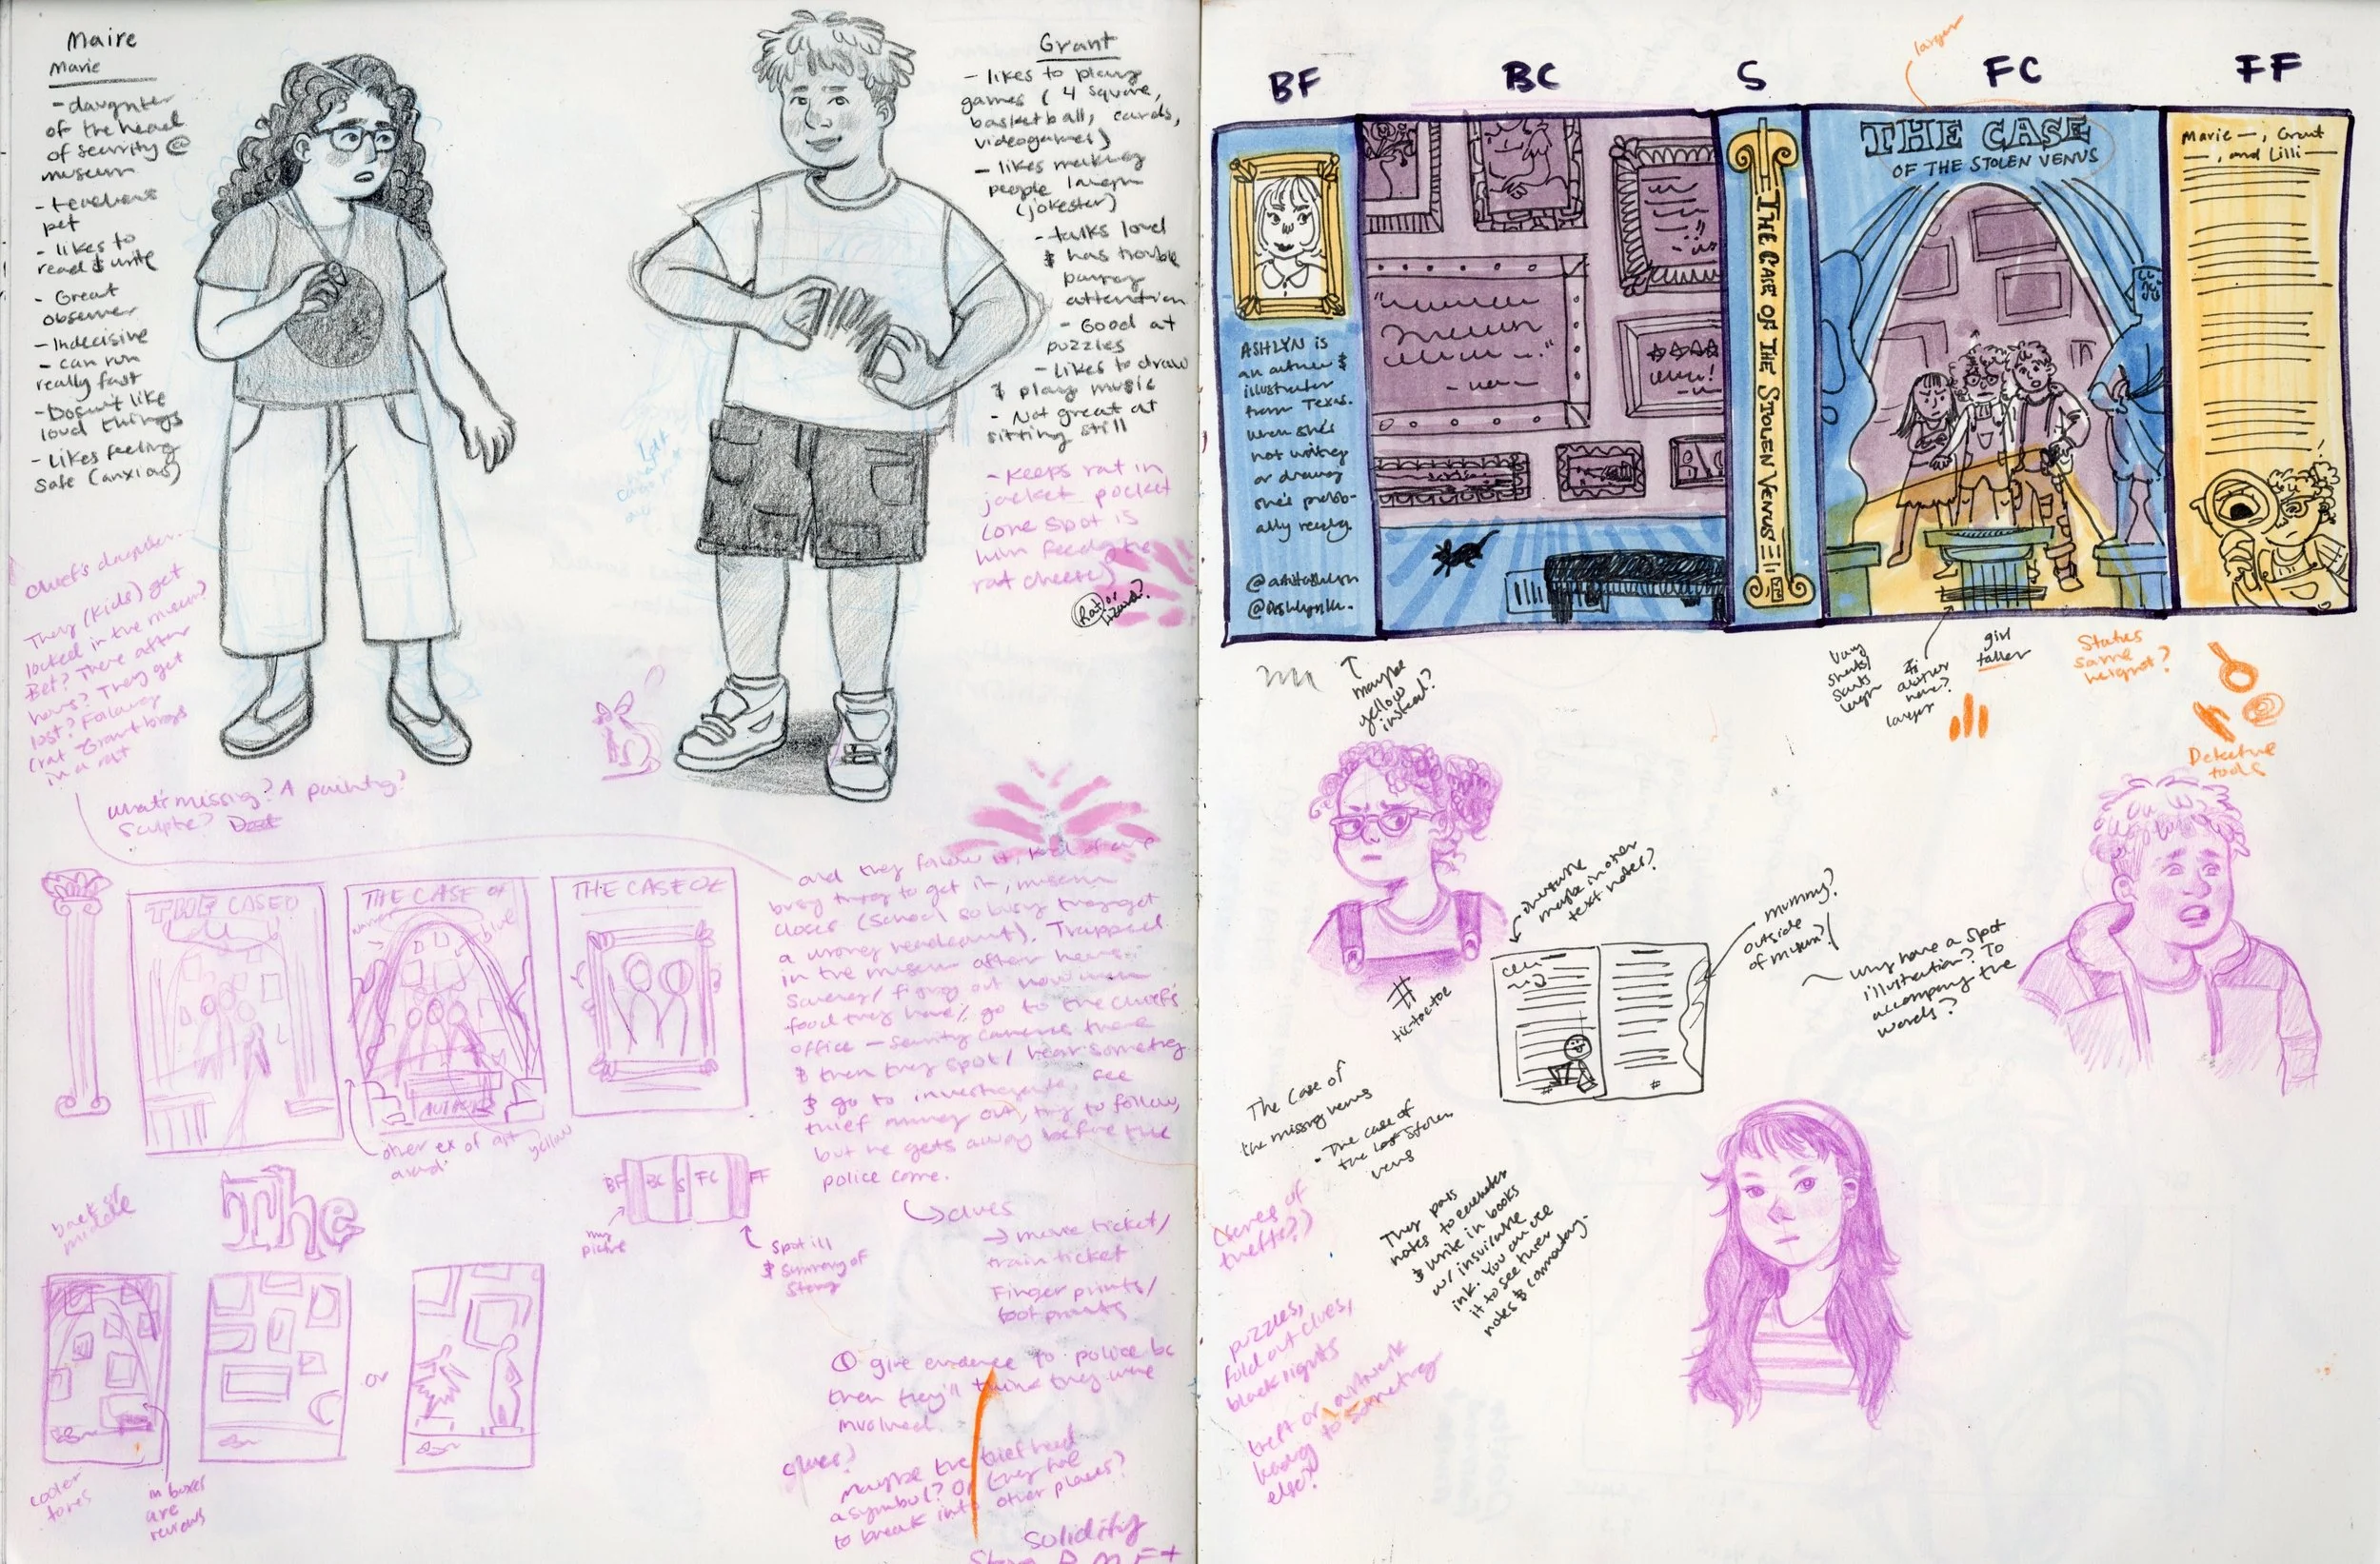 Maire
Marie
- daughter
of the head
of security @
museum
- teachers
pet
- likes to
read & write
- Great
observer
- Indecisive
- can run
really fast
- Doesn't like
loud things
- Likes feeling
safe (anxious)
Grant
- likes to play
games (4 square,
basketball, cards,
videogames)
- likes making
people laugh
(jokester)
- talks loud
& has trouble
paying
attention
- Good at
puzzles
- Likes to draw
& play music
- Not great at
sitting still
- Keeps rat in
jacket pocket
(one spot is
him feeding the
rat cheese)
Rat or
lizard?
Chief's daughter
They (kids) get
locked in the museum?
Bet? There after
hours? They get
lost? Following
rat Grant brings
in a rat
what's missing? A painting?
Sculpture?
THE CASE O
THE CASE OF
blue
AUTHOR
THE CASE OF
other ex of art
around
yellow
and they follow it,
busy trying to get in, museum
closes (school so busy they get
a wrong headcount). Trapped
in the museum after hours.
food they have, go to the chief's
office - security cameras there
& then they spot/hear something
& go to investigate, see
thief running out, try to follow,
but he gets away before the
police come.
clues
→ movie ticket/
train ticket
Finger prints/
footprints
① give evidence to police bc
then they'll think they were
involved.
clues?
Maybe the thief had
a symbol? Or they had
to break into other places?
solidify
The
BF BC S FC FF
my
picture
Spot ill
& summary of
story
or
cooler
tones
in boxes
are
reviews
BF BC S FC FF
larger
ASHLYN is
an author &
illustrator
from Texas.
When she's
not writing
or drawing
she's prob-
ally reading.
THE CASE OF THE STOLEN VENUS
THE CASE
OF THE STOLEN VENUS
Marie —, Grant
—, and Lilli —
maybe
yellow
instead?
vary
shorts/
skirts
length
author
name?
larger
girl
taller
Statues
same
height?
Detective
tools
#
tic-tac-toe
maybe in other
text notes?
mummy?
outside
of museum?
why have a spot
illustration? To
accompany the
words?
The Case of
the missing venus
- The case of
the lost stolen
venus
(series of
thefts?)
They pass
notes to eachother
& write in books
w/ invisible
ink. You can use
it to see their
notes & commentary.
puzzles,
fold out clues,
black lights
theft or artwork
leading to something
else?